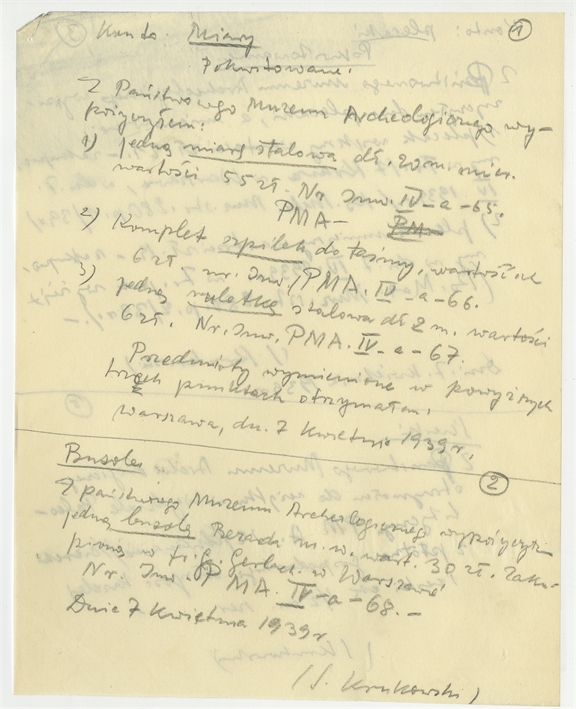 ①
Konto Miary
Pokwitowanie.
Z Państwowego Muzeum Archeologicznego wy-
pożyczyłem:
1) jedną miarę stalową dł. 20 m.
wartości 55 zł. Nr. Inw. IV-a-65.
PMA-
2) Komplet szpilek do taśmy, wartości
6 zł nr. Inw. PMA. IV-a-66.
3) jedną ruletkę stalową dł 2 m. wartości
6 zł. Nr. Inw. PMA. IV-a-67.
Przedmioty wymienione w powyższych
trzech punktach otrzymałem.
Warszawa, dn. 7 Kwietnia 1939 r.
②
Busola
Z państwowego Muzeum Archeologicznego wypożyczy-
jedną busolę m. w. wart. 30 zł. Zaku-
pioną w f. G. Gerlach w Warszawie
Nr. Inw. PMA. IV-a-68.-
Dnia 7 Kwietnia 1939 r.
(S. Krukowski)